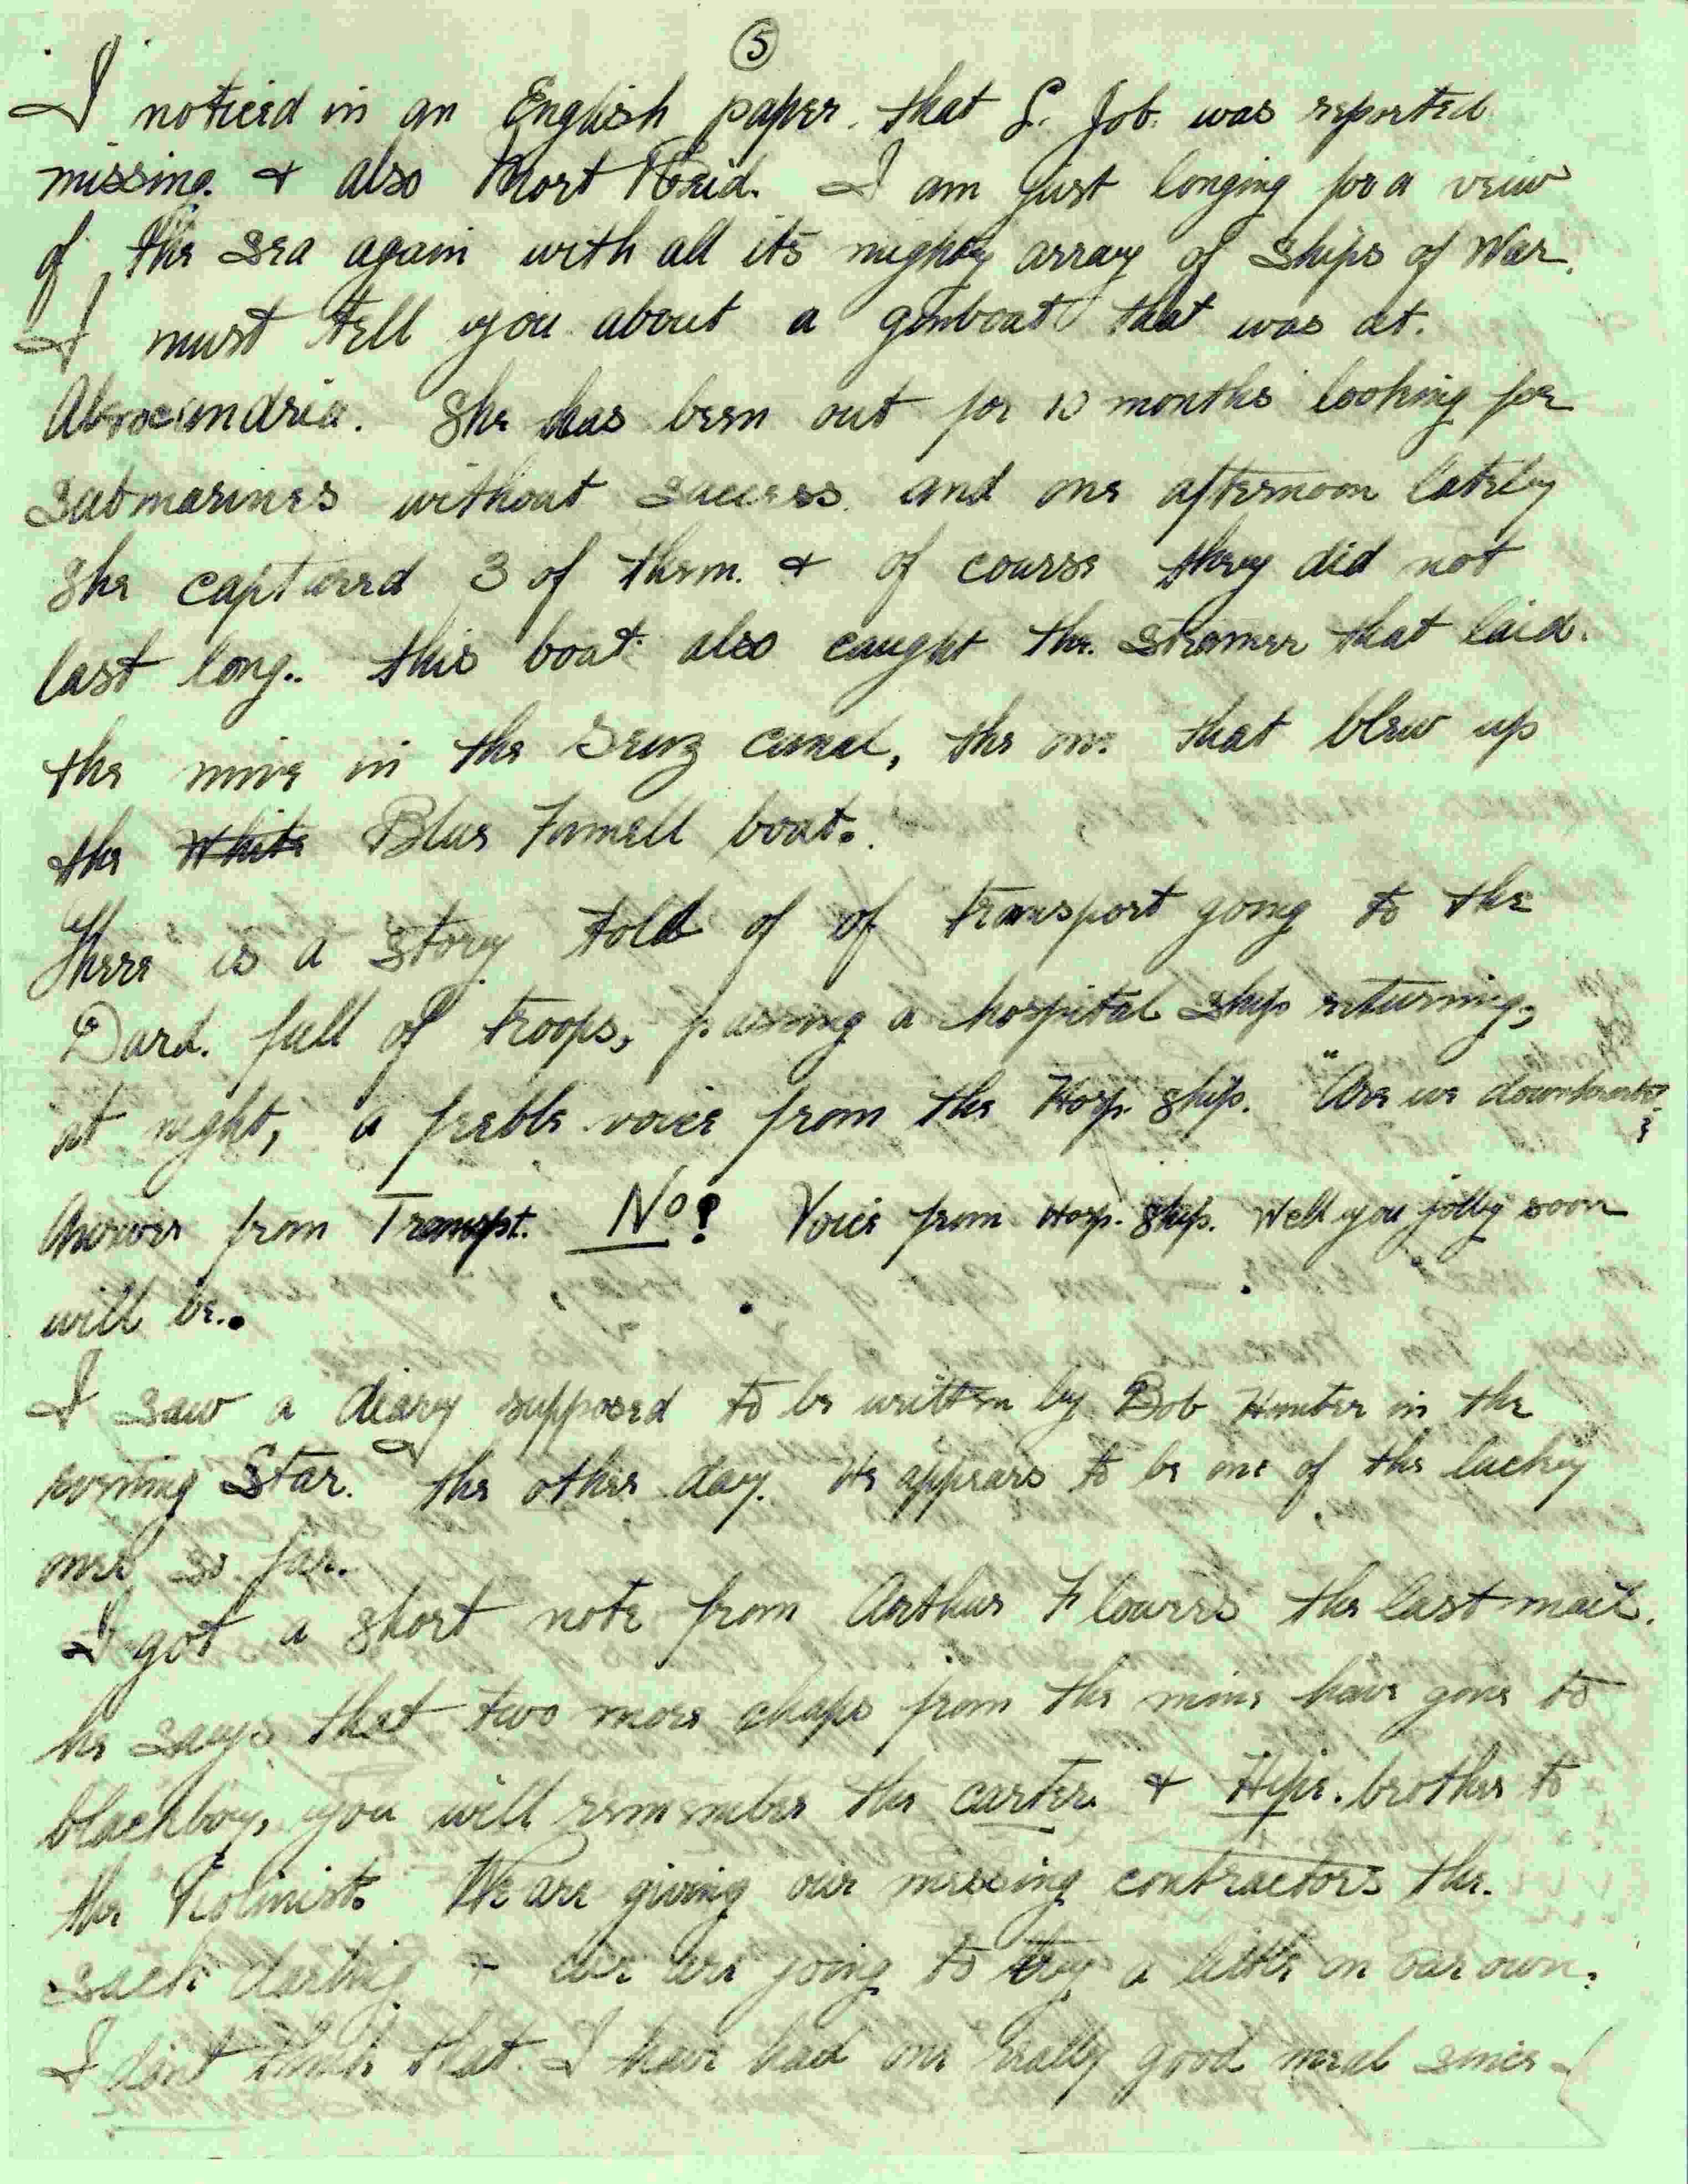 5
I noticed in an English paper. that L. Job. was reported
missing. & also Mort Reid. I am just longing for a veiw
of the sea again with all its mighty array of Ships of War.
I must tell you about a gunboat that was at.
She has been out for 10 months looking for
submarines without success. and one afternoon lately
She captured 3 of them. & of course they did not
last long.. this boat also caught the. Steamer that laid.
the mine in the Seuz canal, the one that blew up
the White Blue Funnell boat.
There is a story told of of transport going to the
Dard. full of troops, passing a hospital ship returning,
at night, a feeble voice from the Hosp. Ship. "Are we downhearted
Answer from Transpt. No! Voice from Hosp. Ship. Well you jolly soon
will be..
I saw a diary supposed to be written by Bob Hunter in the
evening Star. the other day. He appears to be one of the lucky
ones so far.
I got a short note from Arthur Flowers the last mail.
he says that two more chaps from the mine have gone to
blackboy, you will remember the carter & Hipe. brother to
the Violinist. We are giving our messing contractors the.
sack darling & are going to try a little on our own.
I don't think that. I have had one really good meal since